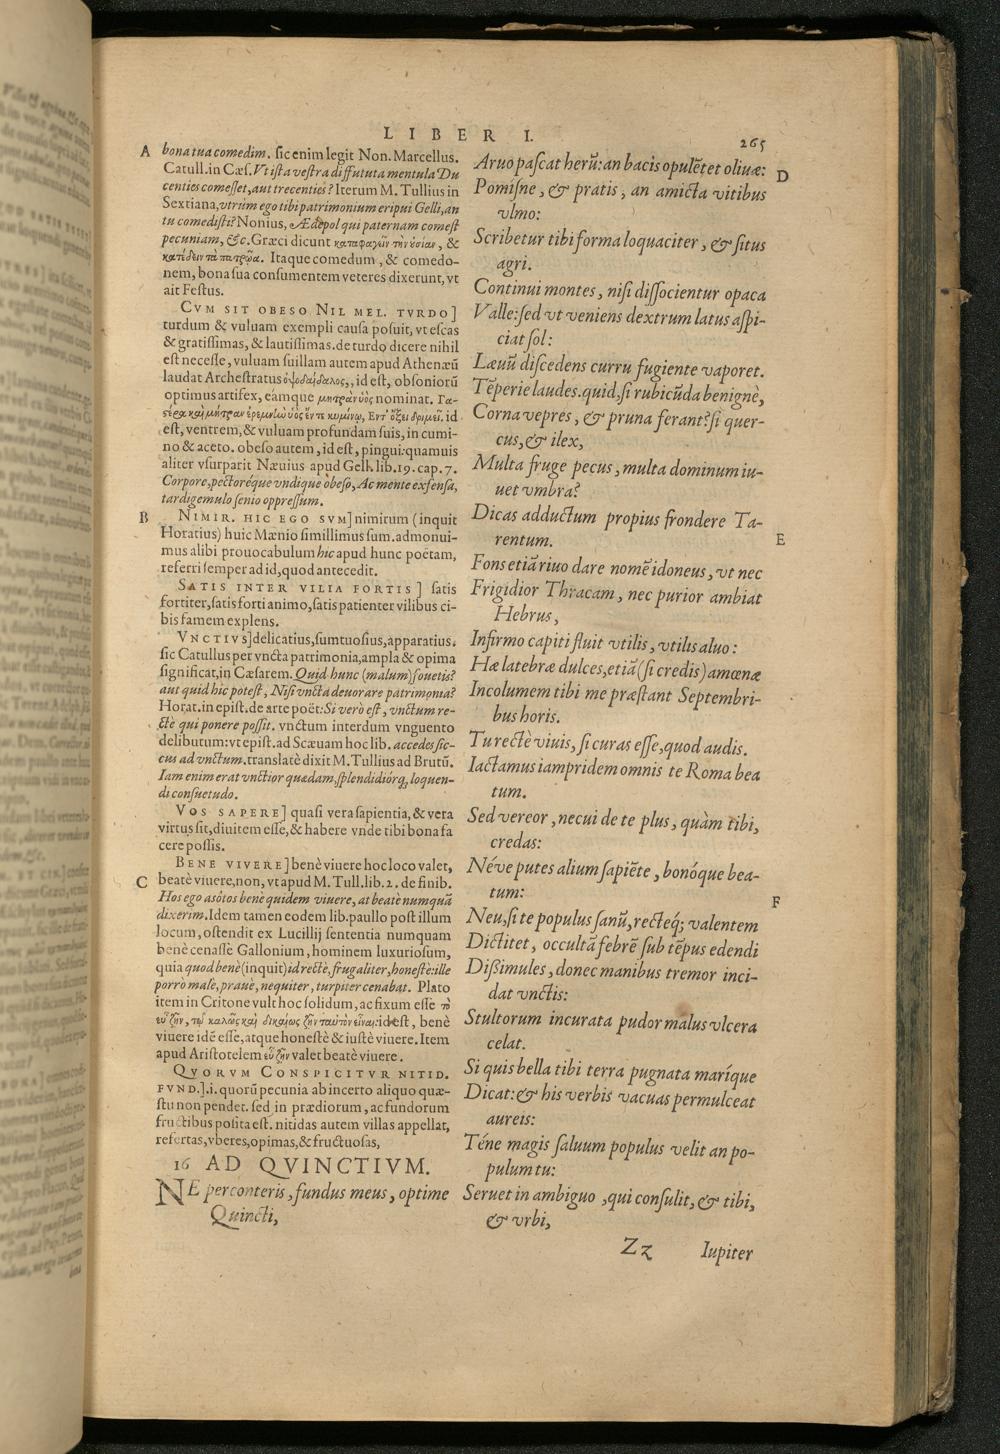 LIBER I.
265
A
bona tua comedim. sic enim legit Non. Marcellus.
Catull. in Cæs. Vt ista vestra diffututa mentula Du
centies comesset, aut trecenties? Iterum M. Tullius in
Sextiana, vtrum ego tibi patrimonium eripui Gelli, an
tu comedisti? Nonius, Ædepol qui paternam comest
pecuniam, &c. Græci dicunt καταφαγεῖν τὴν οὐσίαν, &
κατέδειν τὰ πατρῷα. Itaque comedum, & comedo-
nem, bona sua consumentem veteres dixerunt, vt
ait Festus.
CVM SIT OBESO NIL MEL. TVRDO]
turdum & vuluam exempli causa posuit, vt escas
& gratissimas, & lautissimas. de turdo dicere nihil
est necesse, vuluam suillam autem apud Athenæū
laudat Archestratus ὀψοδαίδαλος,, id est, obsoniorū
optimus artifex, eamque μήτραν ὑὸς nominat. Γα-
στέρα καὶ μήτραν ἐφθὴν ὑὸς ἔν τε κυμίνῳ, Εντ' ὄξει δριμεῖ. id
est, ventrem, & vuluam profundam suis, in cumi-
no & aceto. obeso autem, id est, pingui: quamuis
aliter vsurparit Næuius apud Gell. lib. 19. cap. 7.
Corpore, pectoréque vndique obeso, Ac mente exsensa,
tardigemulo senio oppressum.
B
NIMIR. HIC EGO SVM] nimirum (inquit
Horatius) huic Mænio simillimus sum. admonui-
mus alibi prouocabulum hic apud hunc poëtam,
referri semper ad id, quod antecedit.
SATIS INTER VILIA FORTIS] satis
fortiter, satis forti animo, satis patienter vilibus ci-
bis famem explens.
VNCTIVS] delicatius, sumtuosius, apparatius.
sic Catullus per vncta patrimonia, ampla & opima
significat, in Cæsarem. Quid hunc (malum) fouetis?
aut quid hic potest, Nisi vncta deuorare patrimonia?
Horat. in epist. de arte poët: Si verò est, vnctum re-
ctè qui ponere possit. vnctum interdum vnguento
delibutum: vt epist. ad Scæuam hoc lib. accedes sic-
cus ad vnctum. translatè dixit M. Tullius ad Brutū.
Iam enim erat vnctior quædam, splendidiórq; loquen-
di consuetudo.
VOS SAPERE] quasi vera sapientia, & vera
virtus sit, diuitem esse, & habere vnde tibi bona fa
cere possis.
BENE VIVERE] benè viuere hoc loco valet,
C
beatè viuere, non, vt apud M. Tull. lib. 2. de finib.
Hos ego asôtos benè quidem viuere, at beatè numquā
dixerim. Idem tamen eodem lib. paullo post illum
locum, ostendit ex Lucillij sententia numquam
benè cenasse Gallonium, hominem luxuriosum,
quia quod benè (inquit) id rectè, frugaliter, honestè: ille
porrò malè, prauè, nequiter, turpiter cenabat. Plato
item in Critone vult hoc solidum, ac fixum esse τὸ
εὖ ζῆν, τῷ καλῶς καὶ δικαίως ζῆν ταὐτὸν εἶναι: id est, benè
viuere idē esse, atque honestè & iustè viuere. Item
apud Aristotelem εὖ ζῆν valet beatè viuere.
QVORVM CONSPICITVR NITID.
FVND.] .i. quorū pecunia ab incerto aliquo quæ-
stu non pendet. sed in prædiorum, ac fundorum
fructibus posita est. nitidas autem villas appellat,
refertas, vberes, opimas, & fructuosas,
16 AD QVINCTIVM.
NE perconteris, fundus meus, optime
Quincti,
Aruo pascat herū: an bacis opulētet oliuæ:
D
Pomisne, & pratis, an amicta vitibus
vlmo:
Scribetur tibi forma loquaciter, & situs
agri.
Continui montes, nisi dissocientur opaca
Valle: sed vt veniens dextrum latus aspi-
ciat sol:
Læuū discedens curru fugiente vaporet.
Tēperie laudes. quid, si rubicūda benignè,
Corna vepres, & pruna ferant? si quer-
cus, & ilex,
Multa fruge pecus, multa dominum iu-
uet vmbra?
Dicas adductum propius frondere Ta-
rentum.
E
Fons etiā riuo dare nomē idoneus, vt nec
Frigidior Thracam, nec purior ambiat
Hebrus,
Infirmo capiti fluit vtilis, vtilis aluo:
Hæ latebræ dulces, etiā (si credis) amœnæ
Incolumem tibi me præstant Septembri-
bus horis.
Tu rectè viuis, si curas esse, quod audis.
Iactamus iampridem omnis te Roma bea
tum.
Sed vereor, ne cui de te plus, quàm tibi,
credas:
Néve putes alium sapiēte, bonóque bea-
tum:
F
Neu, si te populus sanū, rectéq; valentem
Dictitet, occultā febrē sub tēpus edendi
Dißimules, donec manibus tremor inci-
dat vnctis:
Stultorum incurata pudor malus vlcera
celat.
Si quis bella tibi terra pugnata maríque
Dicat: & his verbis vacuas permulceat
aureis:
Téne magis saluum populus velit an po-
pulum tu:
Seruet in ambiguo, qui consulit, & tibi,
& vrbi,
Zz
Iupiter